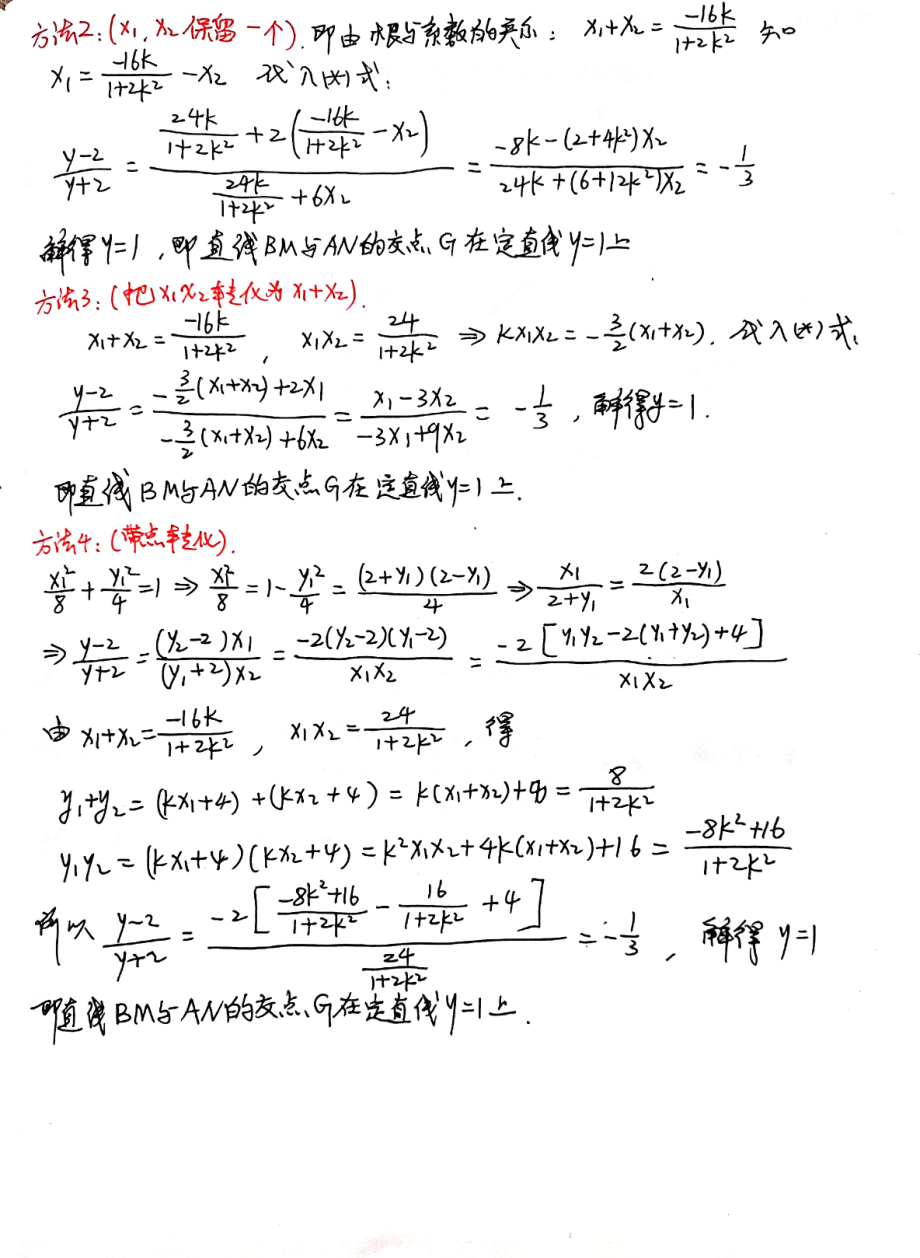 方法2:(x₁,x₂保留一个).即由根与系数的关系: x₁+x₂ = \frac{-16k}{1+2k²} 知
x₁ = \frac{-16k}{1+2k²} - x₂ 代入(*)式:
\frac{y-2}{y+2} = \frac{\frac{24k}{1+2k²}+2(\frac{-16k}{1+2k²}-x₂)}{\frac{24k}{1+2k²}+6x₂} = \frac{-8k-(2+4k²)x₂}{24k+(6+12k²)x₂} = -\frac{1}{3}
解得y=1,即直线BM与AN的交点G在定直线y=1上
方法3:(把x₁x₂转化为x₁+x₂).
x₁+x₂ = \frac{-16k}{1+2k²}, x₁x₂ = \frac{24}{1+2k²} ⇒ kx₁x₂ = -\frac{3}{2}(x₁+x₂). 代入(*)式:
\frac{y-2}{y+2} = \frac{-\frac{3}{2}(x₁+x₂)+2x₁}{-\frac{3}{2}(x₁+x₂)+6x₂} = \frac{x₁-3x₂}{-3x₁+9x₂} = -\frac{1}{3}, 解得y=1.
即直线BM与AN的交点G在定直线y=1上.
方法4:(带点转化).
\frac{x₁²}{8}+\frac{y₁²}{4}=1 ⇒ \frac{x₁²}{8}=1-\frac{y₁²}{4}=\frac{(2+y₁)(2-y₁)}{4} ⇒ \frac{x₁}{2+y₁}=\frac{2(2-y₁)}{x₁}
⇒ \frac{y-2}{y+2}=\frac{(y₂-2)x₁}{(y₁+2)x₂}=\frac{-2(y₂-2)(y₁-2)}{x₁x₂}=\frac{-2[y₁y₂-2(y₁+y₂)+4]}{x₁x₂}
由x₁+x₂=\frac{-16k}{1+2k²}, x₁x₂=\frac{24}{1+2k²},得
y₁+y₂=(kx₁+4)+(kx₂+4)=k(x₁+x₂)+8=\frac{8}{1+2k²}
y₁y₂=(kx₁+4)(kx₂+4)=k²x₁x₂+4k(x₁+x₂)+16=\frac{-8k²+16}{1+2k²}
所以\frac{y-2}{y+2}=\frac{-2[\frac{-8k²+16}{1+2k²}-\frac{16}{1+2k²}+4]}{\frac{24}{1+2k²}}=-\frac{1}{3}, 解得y=1
即直线BM与AN的交点G在定直线y=1上.